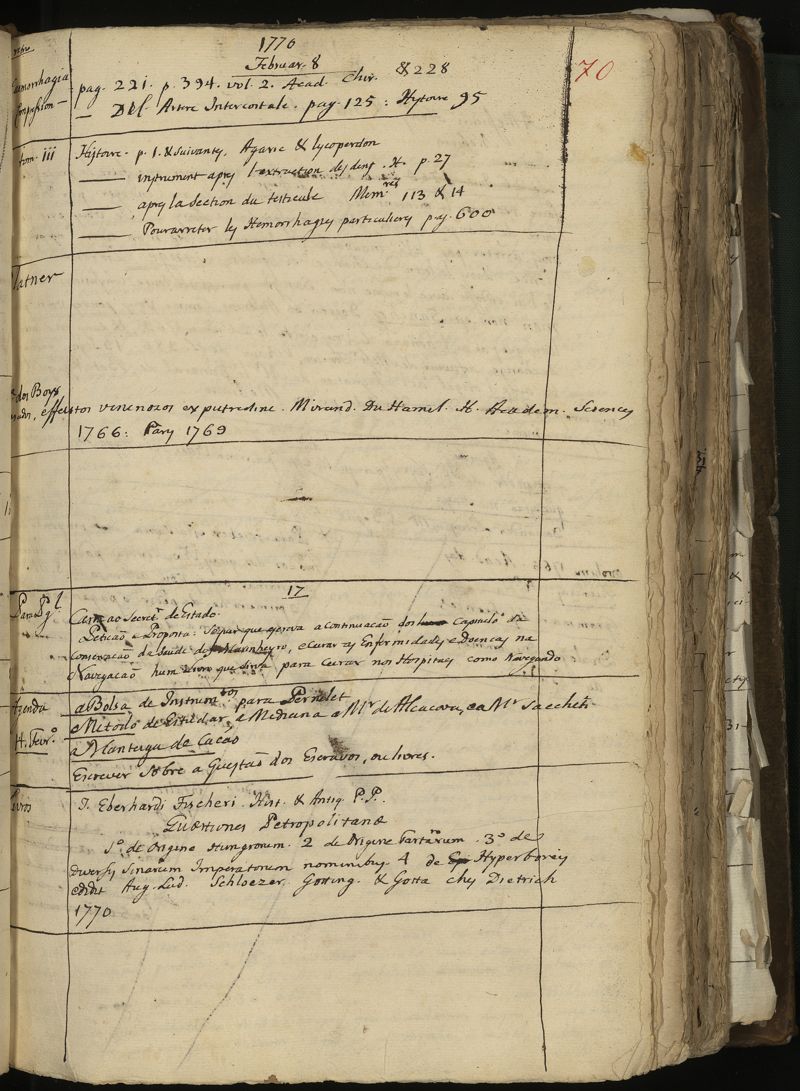 1770
Februar. 8
70
Haemorrhagia pag. 221. p. 394. vol. 2. Acad. Chir. & 228
Compression — Del. Artere Intercostale. pag. 125: Hystoire 95
tom. iii Histoire. p. 1. & suivantes, Agaric & lycoperdon
— instrument apres l'extraction des dens. H. p. 27
— apres la Section du testicule Mem.res 113 & 14
— Pour arreter les Hemorrhagies particulieres pag. 600
Platner
dos Boys
effeitos venenozos ex putredine. Mirand. Du Hamel. H. Academ. Sciences
1766: Paris 1769
17
Para Pgl. Carta ao Secret.o de Estado.
Petição e Proposta: Segur que aprova a continuação dos Capitulos da
Conservação da Saude do Marinheyro, e Curar as Enfermidades e Doencas na
Navegação hum Livro que sirva para Curar nos Hospitaes como Navegando
Azenda a Bolsa de Instrum.tos para Pernelet
14. Fevr.o e Metodo de Estudar, e Medicina a Mr. de Alcacova, e a Mr Sacchetti
a Manteiga de Cacáo
Escrever Sobre a Questaõ dos Escravos, ou livres.
Livros J. Eberhardi Fischeri. Hist. & Antiq. P.P.
Quæstiones Petropolitanæ
1.o de Origine Hungrorum. 2 de Origine Tartarorum. 3.o de
diversis Sinarum Imperatorum nominibus. 4 de Hyperboreis
edidit Aug. Lud. Schloezer. Gotting. & Gotta ches Dietrich
1770